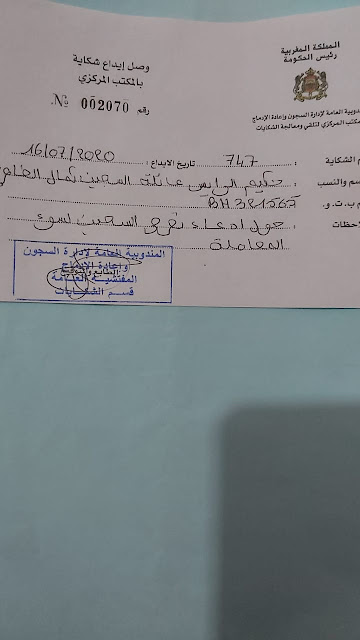 المملكة المغربية
رئيس الحكومة
ندوبية العامة لإدارة السجون وإعادة الإدماج
مكتب المركزي لتلقي ومعالجة الشكايات
وصل إيداع شكاية
بالمكتب المركزي
رقم 002070 №
م الشكاية : 747 تاريخ الايداع : 16/07/2020
سم والنسب : حكيم الرايس عائلة السجين كمال
م ب.ت.و. : BH381567
لاحظات : حول ادعاء تعرض السجين لسوء
المعاملة
المندوبية العامة لإدارة السجون
وإعادة الإدماج
الطابع والتوقيع
المفتشية العامة
قسم الشكايات